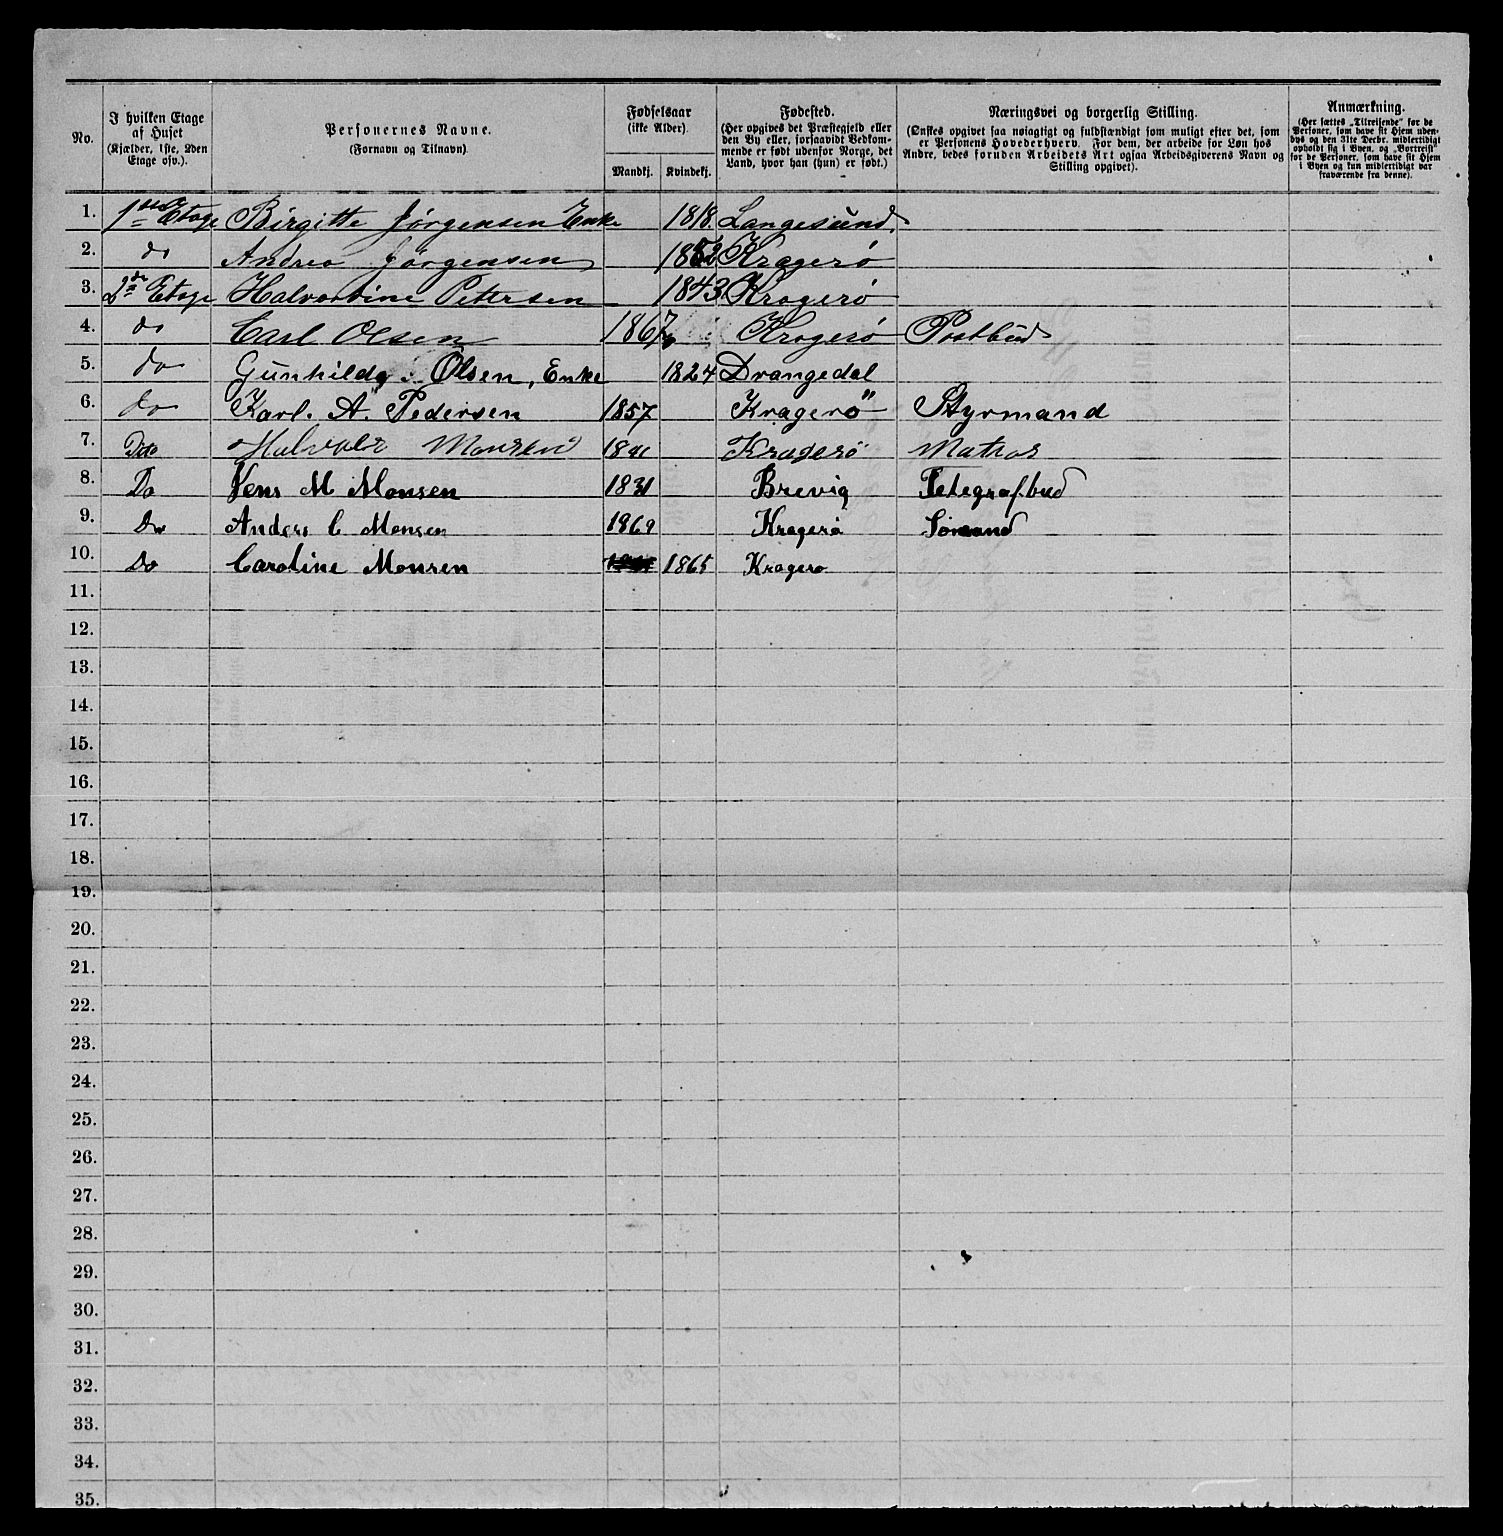 No. I hvilken Etage af Huset (Kjælder, 1ste, 2den Etage osv.). Personernes Navne. (Fornavn og Tilnavn) Fødselsaar (ikke Alder). Mandkj. Kvindekj. Fødested. (Her opgives det Præstegjeld eller den By eller, forsaavidt Vedkommende er født udenfor Norge, det Land, hvor han (hun) er født.) Næringsvei og borgerlig Stilling. (Ønskes opgivet saa nøiagtigt og fuldstændigt som muligt efter det, som er Personens Hovederhverv. For dem, der arbeide for Løn hos Andre, bedes foruden Arbeidets Art ogsaa Arbeidsgiverens Navn og Stilling opgivet). Anmærkning. (Her sættes „Tilreisende" for de Personer, som have sit Hjem udenbys og den 31te Decbr. midlertidigt opholdt sig i Byen, og „Bortreist" for de Personer, som have sit Hjem i Byen og kun midlertidigt var fraværende fra denne).
1. 1ste Etage Birgitte Jørgensen Enke 1818. Langesund.
2. do Andrea Jørgensen 1852 Kragerø
3. 2de Etage Halvordine Petersen 1843 Kragerø
4. do Carl Olsen 1867 Kragerø Postbud
5. do Gunhilda Olsen, Enke 1824 Drangedal
6. do Karl. A. Pedersen 1857 Kragerø" Styrmand
7. Dito Monsen Kragerø Matros
8. Do Jens M Monsen 1831 Brevig Telegrafbud
9. Do Anders C Monsen 1869 Kragerø Sømand
10. Do Caroline Monsen 1865 Kragerø
11.
12.
13.
14.
15.
16.
17.
18.
19.
20.
21.
22.
23.
24.
25.
26.
27.
28.
29.
30.
31.
32.
33.
34.
35.